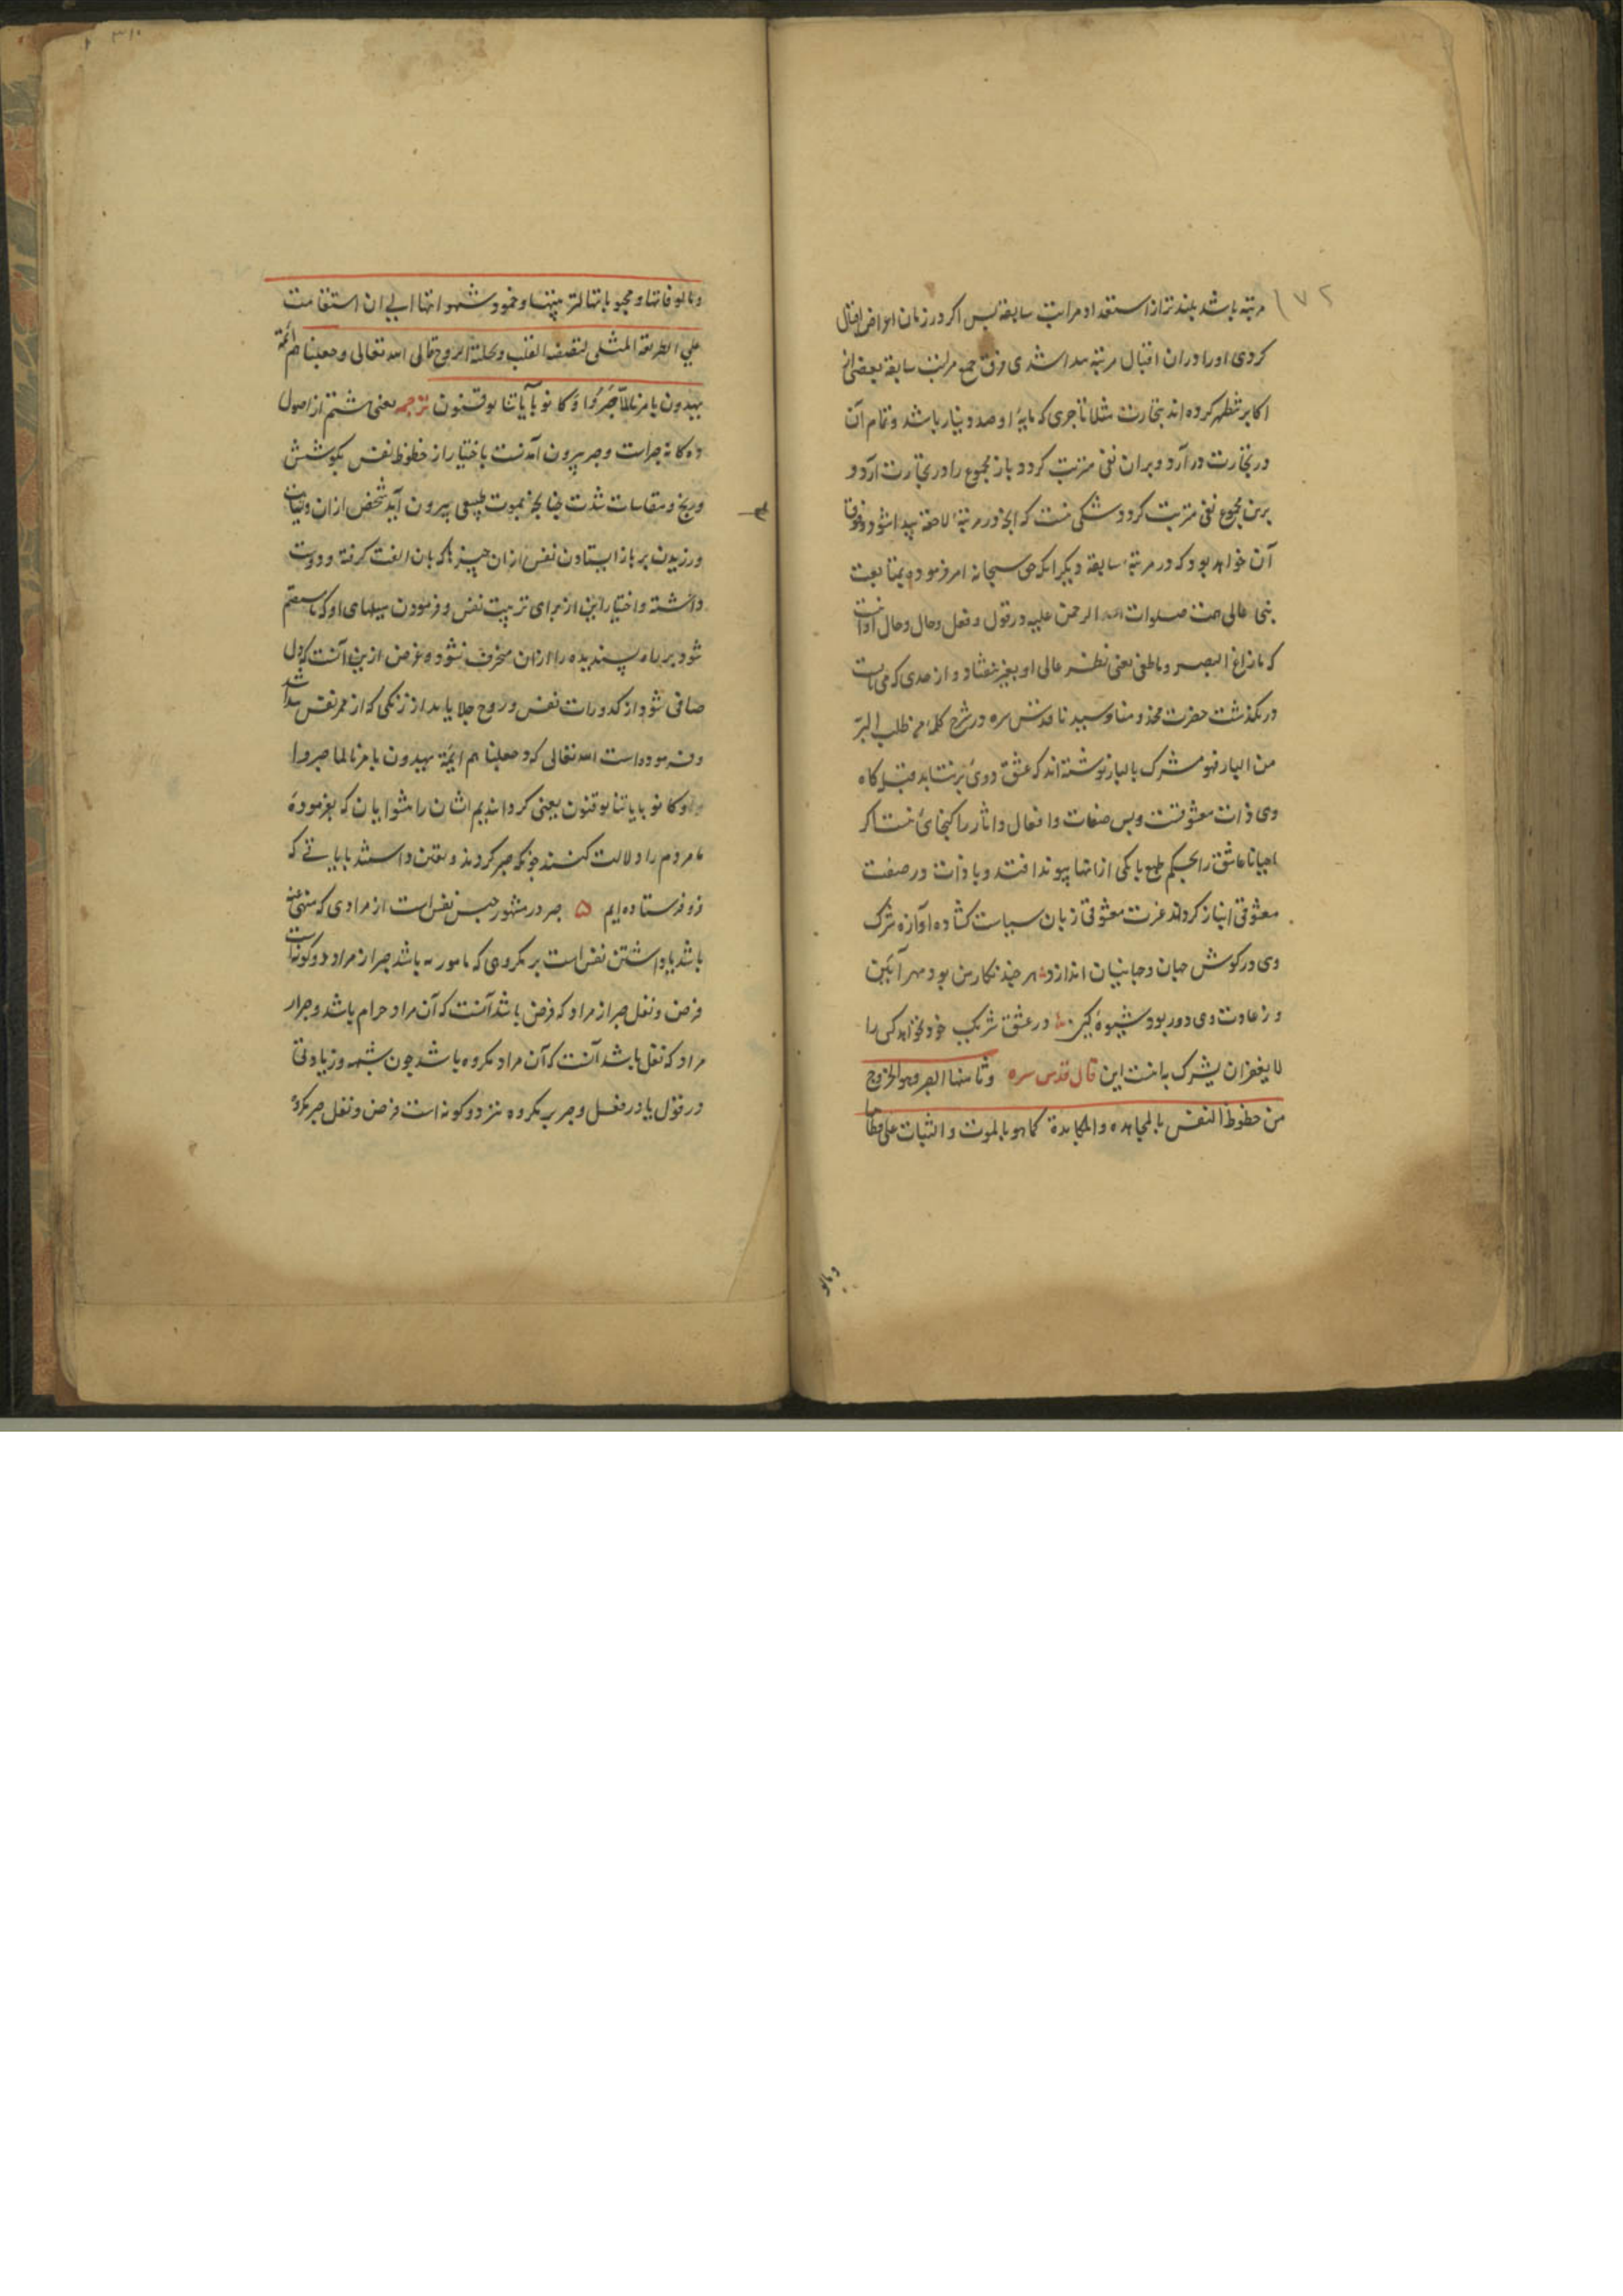 ۱۷۲
مرتبه باشد بلندتر از استعداد مراتب سابقه پس اکر در زمان اعراض اقبال
کردی او را در ان اقبال مرتبه پیدا شدی فوق جمیع مراتب سابقه بعضی از
اکابر تنظیر کرده اند بتجارت مثلا تاجری که مایهٔ او صد دینار باشد و تمام آن
در تجارت در آرد و بران نفعی مترتب کردد باز مجموع را در تجارت آرد و
برین مجموع نفعی مترتب کردد شکی نیست که انچه در مرتبهٔ لاحقه پیدا شود فوق
آن خواهد بود که در مرتبهٔ سابقه دیکر انکه حق سبحانه امر فرموده بمتابعت
نبی عالی همت صلوات الرحمن علیه در قول و فعل و حال و حال او آنست
که ما زاغ البصر و ما طغی یعنی نظر عالی او بغیر نیفتاد و از حدی که می بایست
در نکذشت حضرت مخدومنا و سیدنا قدس سره در شرح کلمهٔ من طلب البر
من البار فهو مشرک بالبار نوشته اند که عشق دوئی بر نتابد قبله کاه
وی ذات معشوقست و بس صفات و افعال و اثار را کنجائی نیست اکر
احیانا عاشق را بحکم طبع با یکی ازانها پیوند افتد و با ذات در صفت
معشوقی انباز کرداند عزت معشوقی زبان سیاست کشاده آوازه شرک
وی در کوش جهان و جهانیان اندازد هر چند نکار من بود مهر آیین
وز عادت وی دور بود شیوهٔ کین در عشق شریک خود نخواهد کسی را
لا یغفر ان یشرک به اینست این قال قدس سره و ثامنها الصبر و هو الخروج
من حظوظ النفس بالمجاهده و المکابدة کما هو بالموت و الثبات علی فطامها
و مالو
و مالوفاتها و محبوباتها لتربیتها و خمود شهواتها الی ان استقامت
علی الطریقة المثلی لتصفیة القلب و تجلیة الروح قال الله تعالی و جعلنا هم ائمة
یهدون بامرنا لمّا صَبَرُوا وَ کانوا بآیاتنا یوقنون ترجمه یعنی هشتم از اصول
ده کانه صبر است و صبر بیرون آمدنست باختیار از حظوظ نفس بکوشش
و رنج و مقاسات شدت چنانچه بموت طبیعی بیرون آید شخص ازان و ثبات
ورزیدن بر باز ایستادن نفس ازان چیزها که بان الفت کرفته و دوست
داشته و اختیار این از برای تربیت نفس و فرمودن میلهای او که تا مستقیم
شود بر راه پسندیده را ازان منحرف نشود و غرض ازین آنست که دل
صافی شود از کدورات نفس و روح جلا یابد از زنکی که از ممر نفس پیدا شد
و فرموده است الله تعالی که و جعلنا هم ائمة یهدون بامرنا لما صبروا
و کانوا بایاتنا یوقنون یعنی کردانیدیم ایشان را پیشوایان که بفرمودهٔ
ما مردم را دلالت کنند چونکه صبر کردند و یقین داشتند بایاتی که
فرو فرستاده ایم ۵ صبر در مشهور حبس نفس است از مرادی که منهی عنه
باشد یا داشتن نفس است بر مکروهی که مامور به باشد صبر از مراد دو کونه است
فرض و نفل صبر از مراد که فرض باشد آنست که آن مراد حرام باشد و صبر از
مراد که نفل باشد آنست که آن مراد مکروه باشد چون شبهه و زیادتی
در قول یا در فعل و صبر بر مکروه نیز دو کونه است فرض و نفل صبر بر مکروه